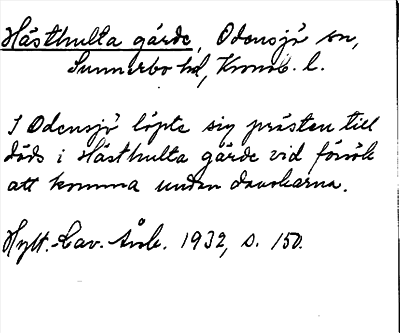 Hästhulta gärde, Odensjö sn,
Sunnerbo hd, Kronob. l.
I Odensjö löpte sig prästen till
döds i Hästhulta gärde vid försök
att komma undan danskarna.
Hylt.-Cav. Årsb. 1932, s. 150.